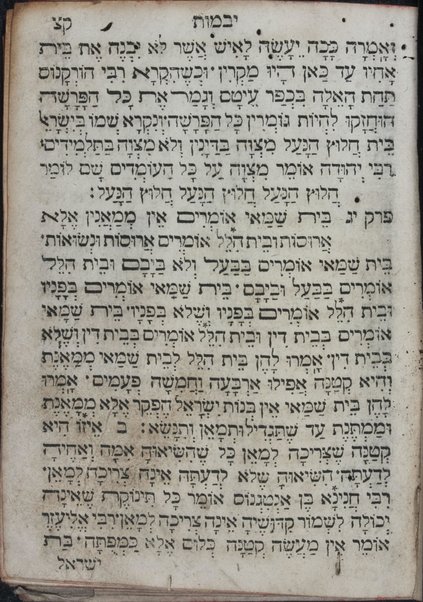 יבמות קצ
וְאָמְרָה כָּכָה יֵעָשֶׂה לָאִישׁ אֲשֶׁר לֹא יִבְנֶה אֶת בֵּית
אָחִיו עַד כָּאן הָיוּ מַקְרִין · וּכְשֶׁהִקְרָא רַבִּי הוֹרְקָנוֹס
תַּחַת הָאֵלָה בִּכְפַר עֵיטָם וְגָמַר אֶת כָּל הַפָּרָשָׁה
הוּחְזְקוּ לִהְיוֹת גּוֹמְרִין כָּל הַפָּרָשָׁה וְנִקְרָא שְׁמוֹ בְּיִשְׂרָאֵ
בֵּית חֲלוּץ הַנָּעַל מִצְוָה בַּדַּיָּנִין וְלֹא מִצְוָה בַּתַּלְמִידִים ·
רַבִּי יְהוּדָה אוֹמֵר מִצְוָה עַל כָּל הָעוֹמְדִים שָׁם לוֹמַר
חֲלוּץ הַנָּעַל חֲלוּץ הַנָּעַל חֲלוּץ הַנָּעַל :
פרק יג בֵּית שַׁמַּאי אוֹמְרִים אֵין מְמָאֲנִין אֶלָּא
אֲרוּסוֹת וּבֵית הִלֵּל אוֹמְרִים אֲרוּסוֹת וּנְשׂוּאוֹת ·
בֵּית שַׁמַּאי אוֹמְרִים בַּבַּעַל וְלֹא בַיָּבָם וּבֵית הִלֵּל
אוֹמְרִים בַּבַּעַל וּבַיָּבָם · בֵּית שַׁמַּאי אוֹמְרִים בְּפָנָיו
וּבֵית הִלֵּל אוֹמְרִים בְּפָנָיו וְשֶׁלֹּא בְפָנָיו בֵּית שַׁמַּאי
אוֹמְרִים בְּבֵית דִּין וּבֵית הִלֵּל אוֹמְרִים בְּבֵית דִּין וְשֶׁלֹּא
בְּבֵית דִּין · אָמְרוּ לָהֶן בֵּית הִלֵּל לְבֵית שַׁמַּאי מְמָאֶנֶת
וְהִיא קְטַנָּה אֲפִילוּ אַרְבָּעָה וַחֲמִשָּׁה פְעָמִים · אָמְרוּ
לָהֶן בֵּית שַׁמַּאי אֵין בְּנוֹת יִשְׂרָאֵל הֶפְקֵר אֶלָּא מְמָאֶנֶת
וּמַמְתֶּנֶת עַד שֶׁתַּגְדִּיל וּתְמָאֵן וְתִנָּשֵׂא : ב אֵיזוֹ הִיא
קְטַנָּה שֶׁצְּרִיכָה לְמָאֵן כָּל שֶׁהִשִּׂיאוּהָ אִמָּהּ וְאָחִיהָ
לְדַעְתָּהּ · הִשִּׂיאוּהָ שֶׁלֹּא לְדַעְתָּהּ אֵינָהּ צְרִיכָה לְמָאֵן ·
רַבִּי חֲנִינָא בֶּן אַנְטִגְנוֹס אוֹמֵר כָּל תִּינוֹקֶת שֶׁאֵינָהּ
יְכוֹלָה לִשְׁמוֹר קִדּוּשֶׁיהָ אֵינָהּ צְרִיכָה לְמָאֵן רַבִּי אֱלִיעֶזֶר
אוֹמֵר אֵין מַעֲשֵׂה קְטַנָּה כְּלוּם אֶלָּא כִּמְפֻתָּה · בַּת
ישראל